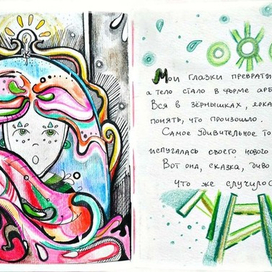 Мои глазки преврати
а тело стало в форме арб
Вся в зёрнышках, хожу
понять, что произошло.
Самое удивительное то
испугалась своего нового
Вот она, сказка, диво
Что же случилос